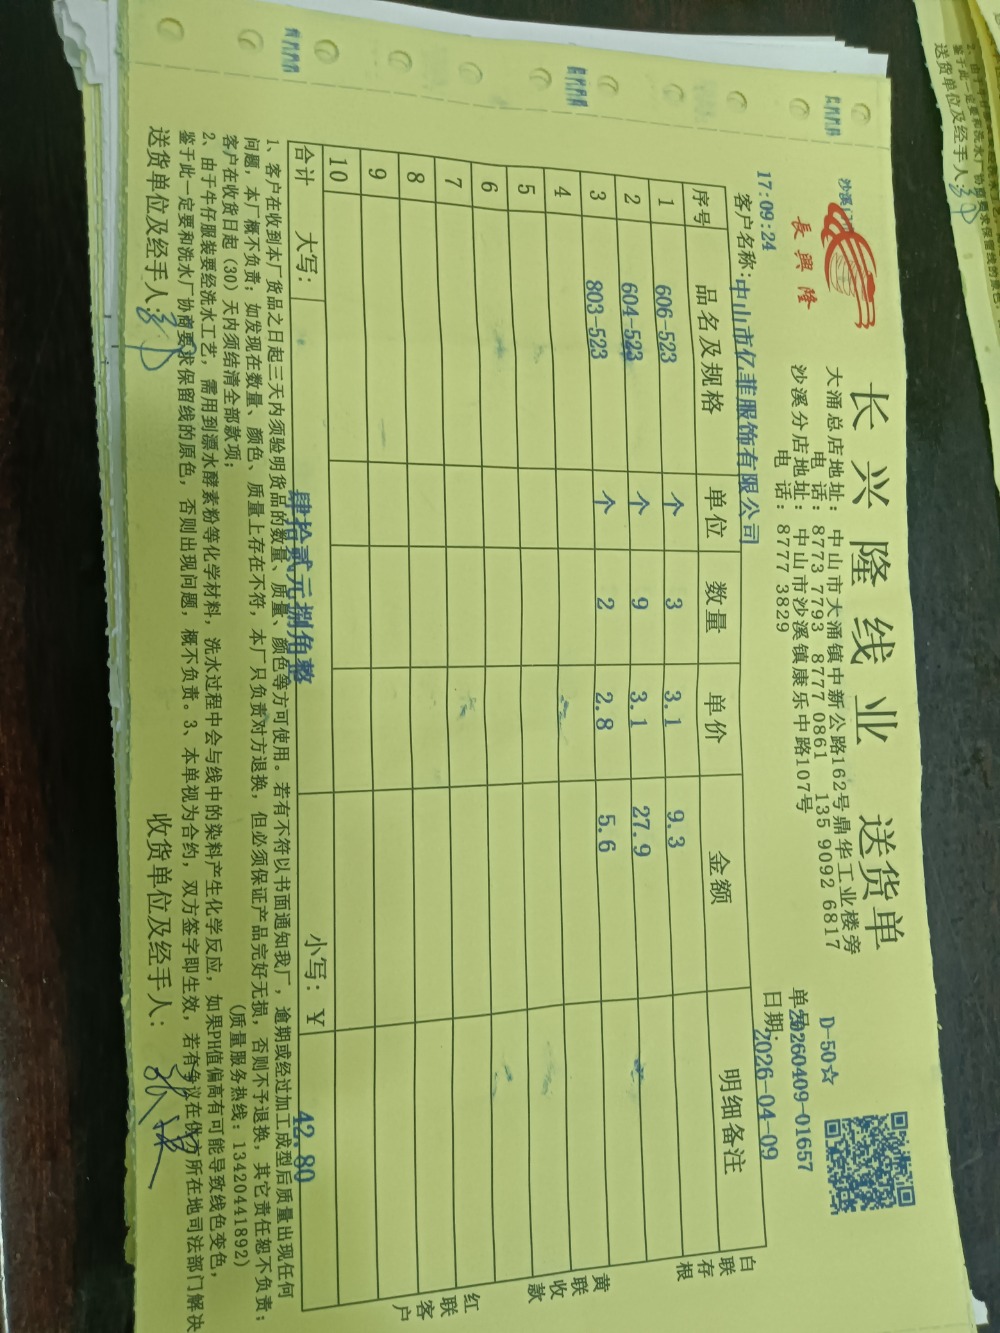 长兴隆线业 送货单
長興隆
大涌总店地址：中山市大涌镇中新公路162号鼎华工业楼旁
电 话：8773 7793 8777 0861 135 9092 6817
沙溪分店地址：中山市沙溪镇康乐中路107号
电 话：8777 3829
D-50☆
单号：20260409-01657
日期：2026-04-09
17:09:24
客户名称：中山市亿菲服饰有限公司
序号 品名及规格 单位 数量 单价 金额 明细备注
1 606-523 个 3 3.1 9.3
2 604-523 个 9 3.1 27.9
3 803-523 个 2 2.8 5.6
4
5
6
7
8
9
10
合计 大写：肆拾贰元捌角整 小写：¥ 42.80
白联存根
黄联收款
红联客户
1、客户在收到本厂货品之日起三天内须验明货品的数量、质量、颜色等方可使用。若有不符以书面通知我厂，逾期或经过加工成型后质量出现任何
问题，本厂概不负责；如发现在数量、颜色、质量上存在不符，本厂只负责对方退换，但必须保证产品完好无损，否则不予退换，其它责任恕不负责；
客户在收货日起（30）天内须结清全部款项；
(质量服务热线：13420441892)
2、由于牛仔服装要经洗水工艺，需用到漂水酵素粉等化学材料，洗水过程中会与线中的染料产生化学反应，如果PH值偏高有可能导致线色变色，
鉴于此一定要和洗水厂协商要求保留线的原色，否则出现问题，概不负责。3、本单视为合约，双方签字即生效，若有争议在供方所在地司法部门解决
送货单位及经手人：
收货单位及经手人：
送货单位及经手人：